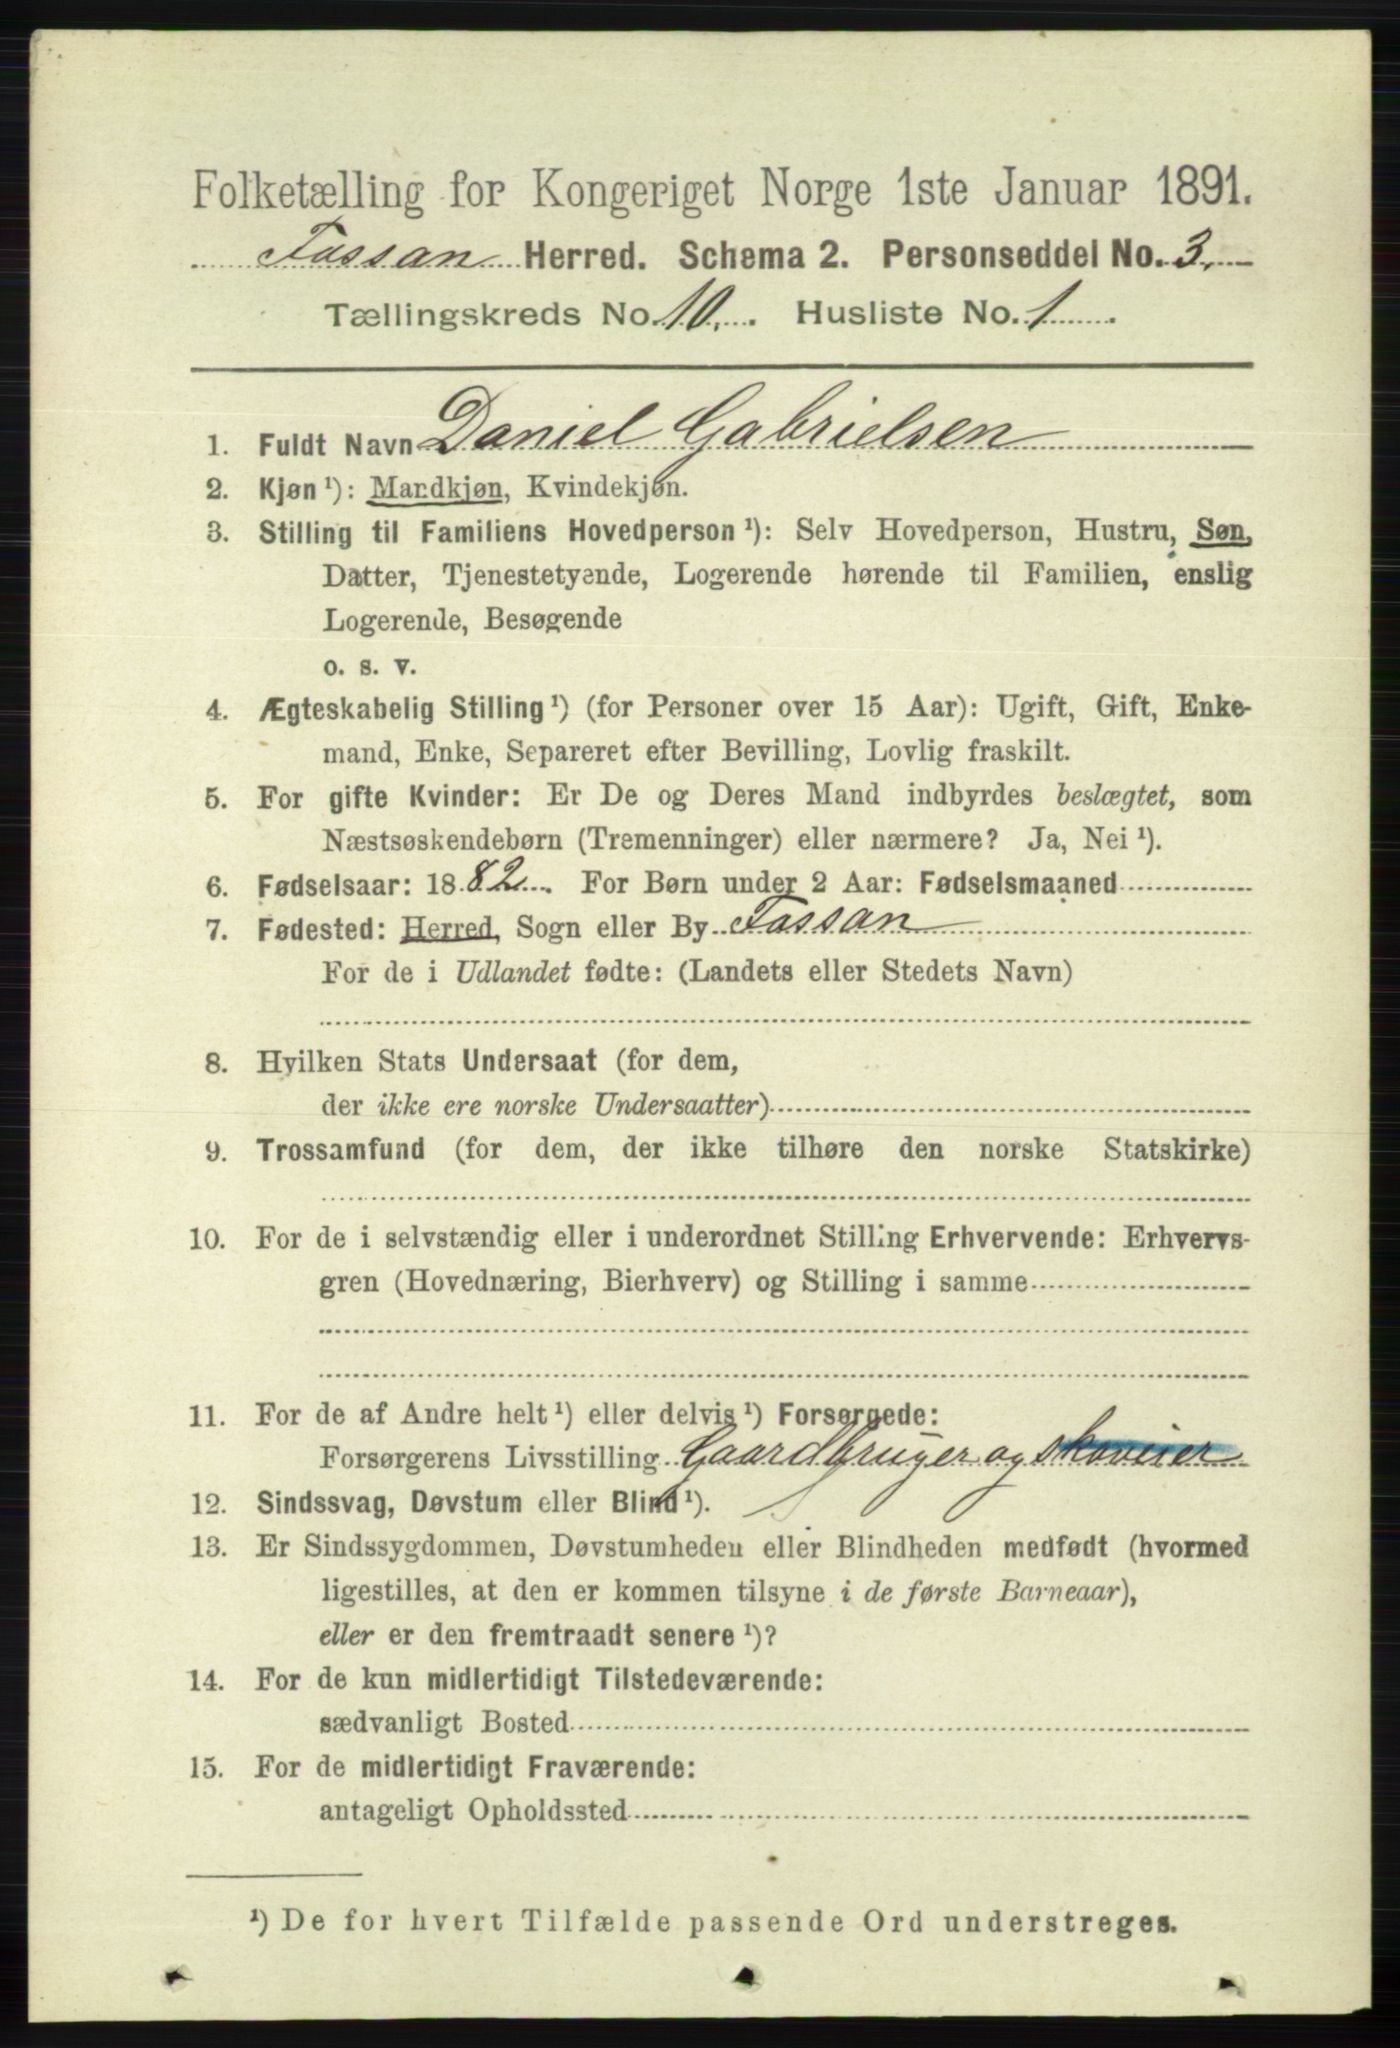 Folketælling for Kongeriget Norge 1ste Januar 1891.
Fossan Herred. Schema 2. Personseddel No. 3.
Tællingskreds No. 10. Husliste No. 1
1. Fuldt Navn Daniel Gabrielsen
2. Kjøn ¹): Mandkjøn, Kvindekjøn.
3. Stilling til Familiens Hovedperson ¹): Selv Hovedperson, Hustru, Søn,
Datter, Tjenestetyende, Logerende hørende til Familien, enslig
Logerende, Besøgende
o. s. v.
4. Ægteskabelig Stilling ¹) (for Personer over 15 Aar): Ugift, Gift, Enke-
mand, Enke, Separeret efter Bevilling, Lovlig fraskilt.
5. For gifte Kvinder: Er De og Deres Mand indbyrdes beslægtet, som
Næstsøskendebørn (Tremenninger) eller nærmere? Ja, Nei ¹).
6. Fødselsaar: 1882. For Børn under 2 Aar: Fødselsmaaned
7. Fødested: Herred, Sogn eller By Fossan
For de i Udlandet fødte: (Landets eller Stedets Navn)
8. Hvilken Stats Undersaat (for dem,
der ikke ere norske Undersaatter)
9. Trossamfund (for dem, der ikke tilhøre den norske Statskirke)
10. For de i selvstændig eller i underordnet Stilling Erhvervende: Erhvervs-
gren (Hovednæring, Bierhverv) og Stilling i samme
11. For de af Andre helt ¹) eller delvis ¹) Forsørgede:
Forsørgerens Livsstilling Gaardbruger og skoveier
12. Sindssvag, Døvstum eller Blind ¹).
13. Er Sindssygdommen, Døvstumheden eller Blindheden medfødt (hvormed
ligestilles, at den er kommen tilsyne i de første Barneaar),
eller er den fremtraadt senere ¹)?
14. For de kun midlertidigt Tilstedeværende:
sædvanligt Bosted
15. For de midlertidigt Fraværende:
antageligt Opholdssted
¹) De for hvert Tilfælde passende Ord understreges.